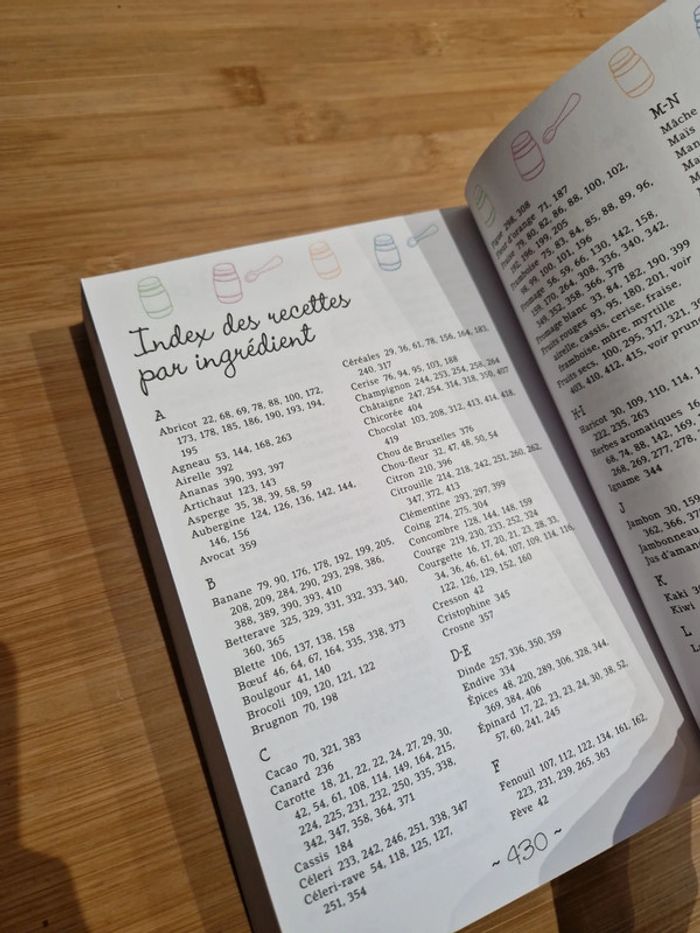 Index des recettes
par ingrédient
A
Abricot 22, 68, 69, 78, 88, 100, 172,
173, 178, 185, 186, 190, 193, 194,
195
Agneau 53, 144, 168, 263
Airelle 392
Ananas 390, 393, 397
Artichaut 123, 143
Asperge 35, 38, 39, 58, 59
Aubergine 124, 126, 136, 142, 144,
146, 156
Avocat 359
B
Banane 79, 90, 176, 178, 192, 199, 205,
208, 209, 284, 290, 293, 298, 386,
388, 389, 390, 393, 410
Betterave 325, 329, 331, 332, 333, 340,
360, 365
Blette 106, 137, 138, 158
Bœuf 46, 64, 67, 164, 335, 338, 373
Boulgour 41, 140
Brocoli 109, 120, 121, 122
Brugnon 70, 198
C
Cacao 70, 321, 383
Canard 236
Carotte 18, 21, 22, 22, 24, 27, 29, 30,
42, 54, 61, 108, 114, 149, 164, 215,
224, 225, 231, 232, 250, 335, 338,
342, 347, 358, 364, 371
Cassis 184
Céleri 233, 242, 246, 251, 338, 347
Céleri-rave 54, 118, 125, 127,
251, 354
Céréales 29, 36, 61, 78, 156, 164, 183,
240, 317
Cerise 76, 94, 95, 103, 188
Champignon 244, 253, 254, 258, 264
Châtaigne 247, 254, 314, 318, 350, 407
Chicorée 404
Chocolat 103, 208, 312, 413, 414, 418,
419
Chou de Bruxelles 376
Chou-fleur 32, 47, 48, 50, 54
Citron 210, 396
Citrouille 214, 218, 242, 251, 260, 262,
347, 372, 413
Clémentine 293, 297, 399
Coing 274, 275, 304
Concombre 128, 144, 148, 159
Courge 219, 230, 233, 252, 324
Courgette 16, 17, 20, 21, 23, 28, 33,
34, 36, 46, 61, 64, 107, 109, 114, 116,
122, 126, 129, 152, 160
Cresson 42
Cristophine 345
Crosne 357
D-E
Dinde 257, 336, 350, 359
Endive 334
Épices 48, 220, 289, 306, 328, 344,
369, 384, 406
Épinard 17, 22, 23, 23, 24, 30, 38, 52,
57, 60, 241, 245
F
Fenouil 107, 112, 122, 134, 161, 162,
223, 231, 239, 265, 363
Fève 42
~ 430 ~
Figue 298, 308
Fleur d'orange 71, 187
Fraise 79, 80, 82, 86, 88, 100, 102,
192, 196, 199, 205
Framboise 75, 83, 84, 85, 88, 89, 96,
98, 99, 100, 101, 196
Fromage 56, 59, 66, 130, 142, 158,
159, 170, 264, 308, 336, 340, 342,
349, 352, 358, 366, 378
Fromage blanc 33, 84, 182, 190, 399
Fruits rouges 93, 95, 180, 201, voir
airelle, cassis, cerise, fraise,
framboise, mûre, myrtille
Fruits secs, 100, 295, 317, 321,
403, 410, 412, 415, voir
H-I
Haricot 30, 109, 110, 114,
222, 235, 263
Herbes aromatiques
68, 74, 88, 142, 169,
268, 269, 277, 278,
Igname 344
J
Jambon 30,
362, 366,
Jambonneau
Jus
K
Kaki
Kiwi
L
M-N
Mâche
Maïs